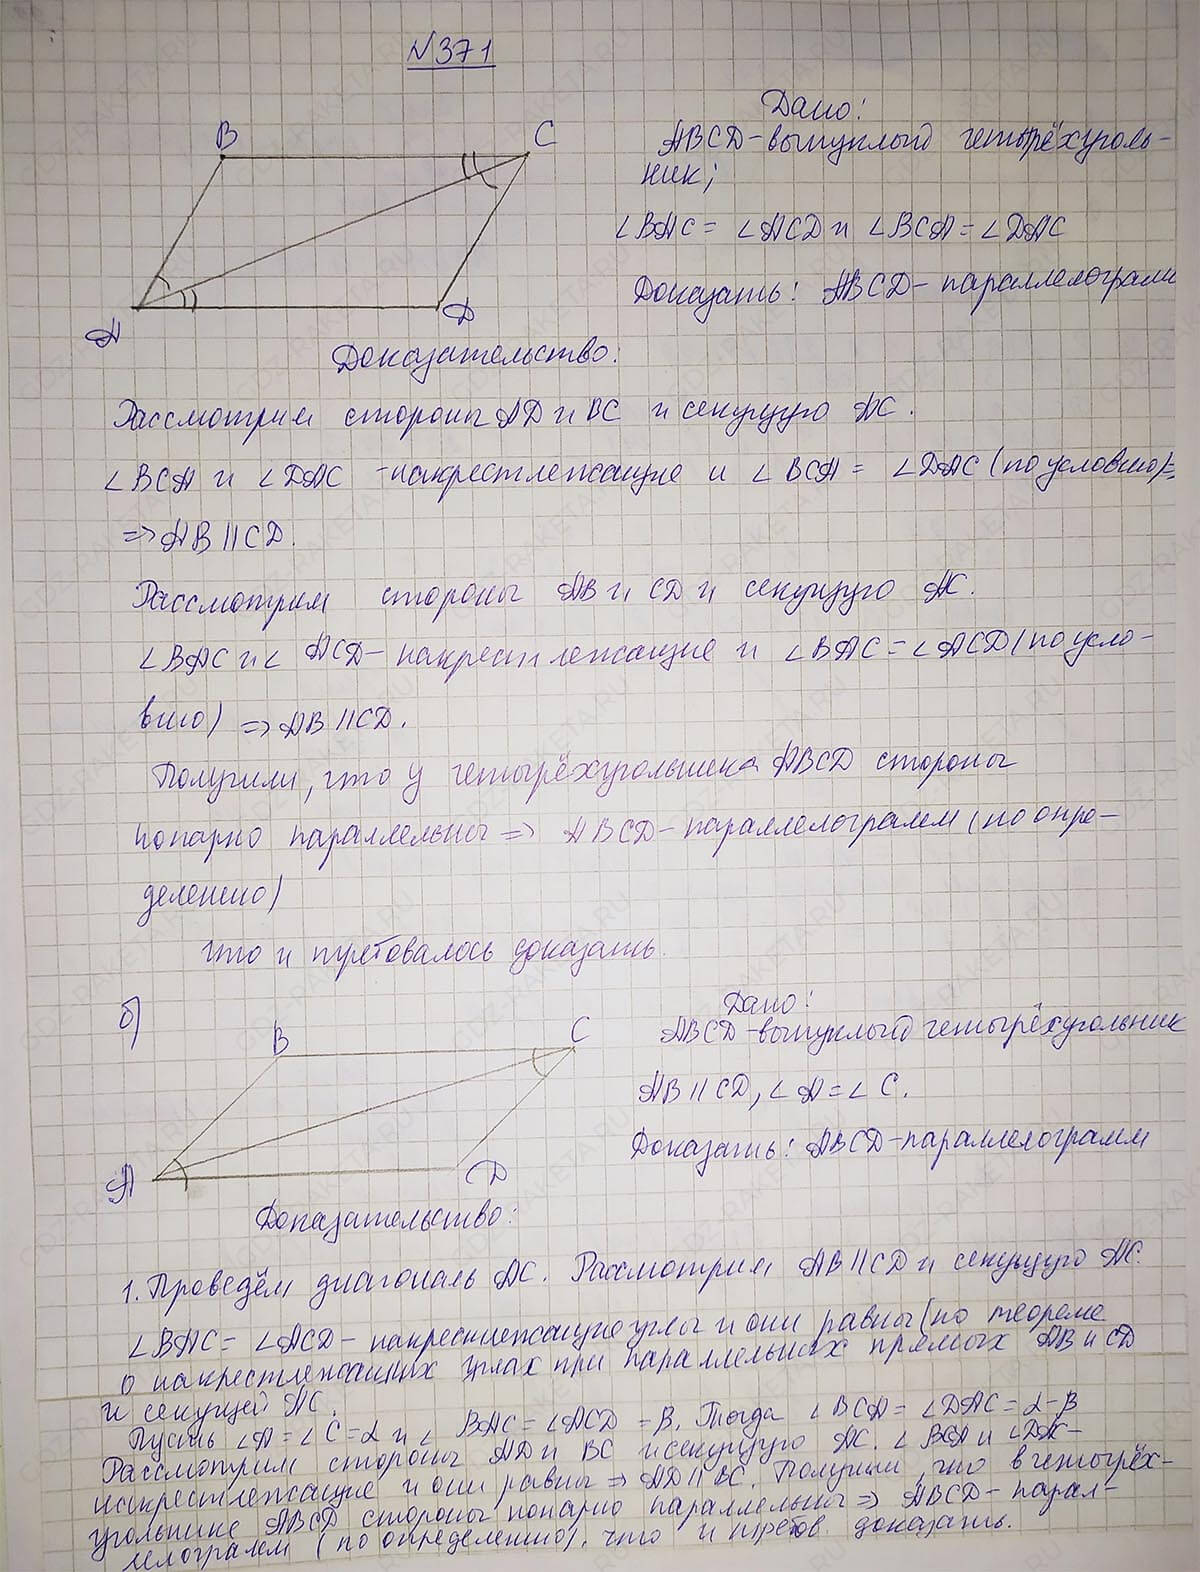 №371
B
C
A
D
Дано:
ABCD-выпуклый четырёхуголь-
ник;
∠BAC = ∠ACD и ∠BCA = ∠DAC
Доказать: ABCD-параллелограмм
Доказательство:
Рассмотрим стороны AD и BC и секущую AC.
∠BCA и ∠DAC -накрестлежащие и ∠BCA = ∠DAC (по условию)=
=> AB || CD.
Рассмотрим стороны AB и CD и секущую AC.
∠BAC и ∠ACD-накрестлежащие и ∠BAC = ∠ACD (по усло-
вию) => AB || CD.
Получили, что у четырёхугольника ABCD стороны
попарно параллельны => ABCD-параллелограмм (по опре-
делению)
что и требовалось доказать.
б)
B
C
A
D
Дано:
ABCD-выпуклый четырёхугольник
AB || CD, ∠A = ∠C.
Доказать: ABCD-параллелограмм
Доказательство:
1. Проведём диагональ AC. Рассмотрим AB || CD и секущую AC.
∠BAC = ∠ACD - накрестлежащие углы и они равны (по теореме
о накрестлежащих углах при параллельных прямых AB и CD
и секущей AC.
Пусть ∠A = ∠C = α и ∠BAC = ∠ACD = β. Тогда ∠BCA = ∠DAC = α-β
Рассмотрим стороны AD и BC и секущую AC. ∠BCA и ∠DAC-
накрестлежащие и они равны => AD || BC. Получили, что в четырёх-
угольнике ABCD стороны попарно параллельны => ABCD-парал-
лелограмм (по определению), что и требов. доказать.